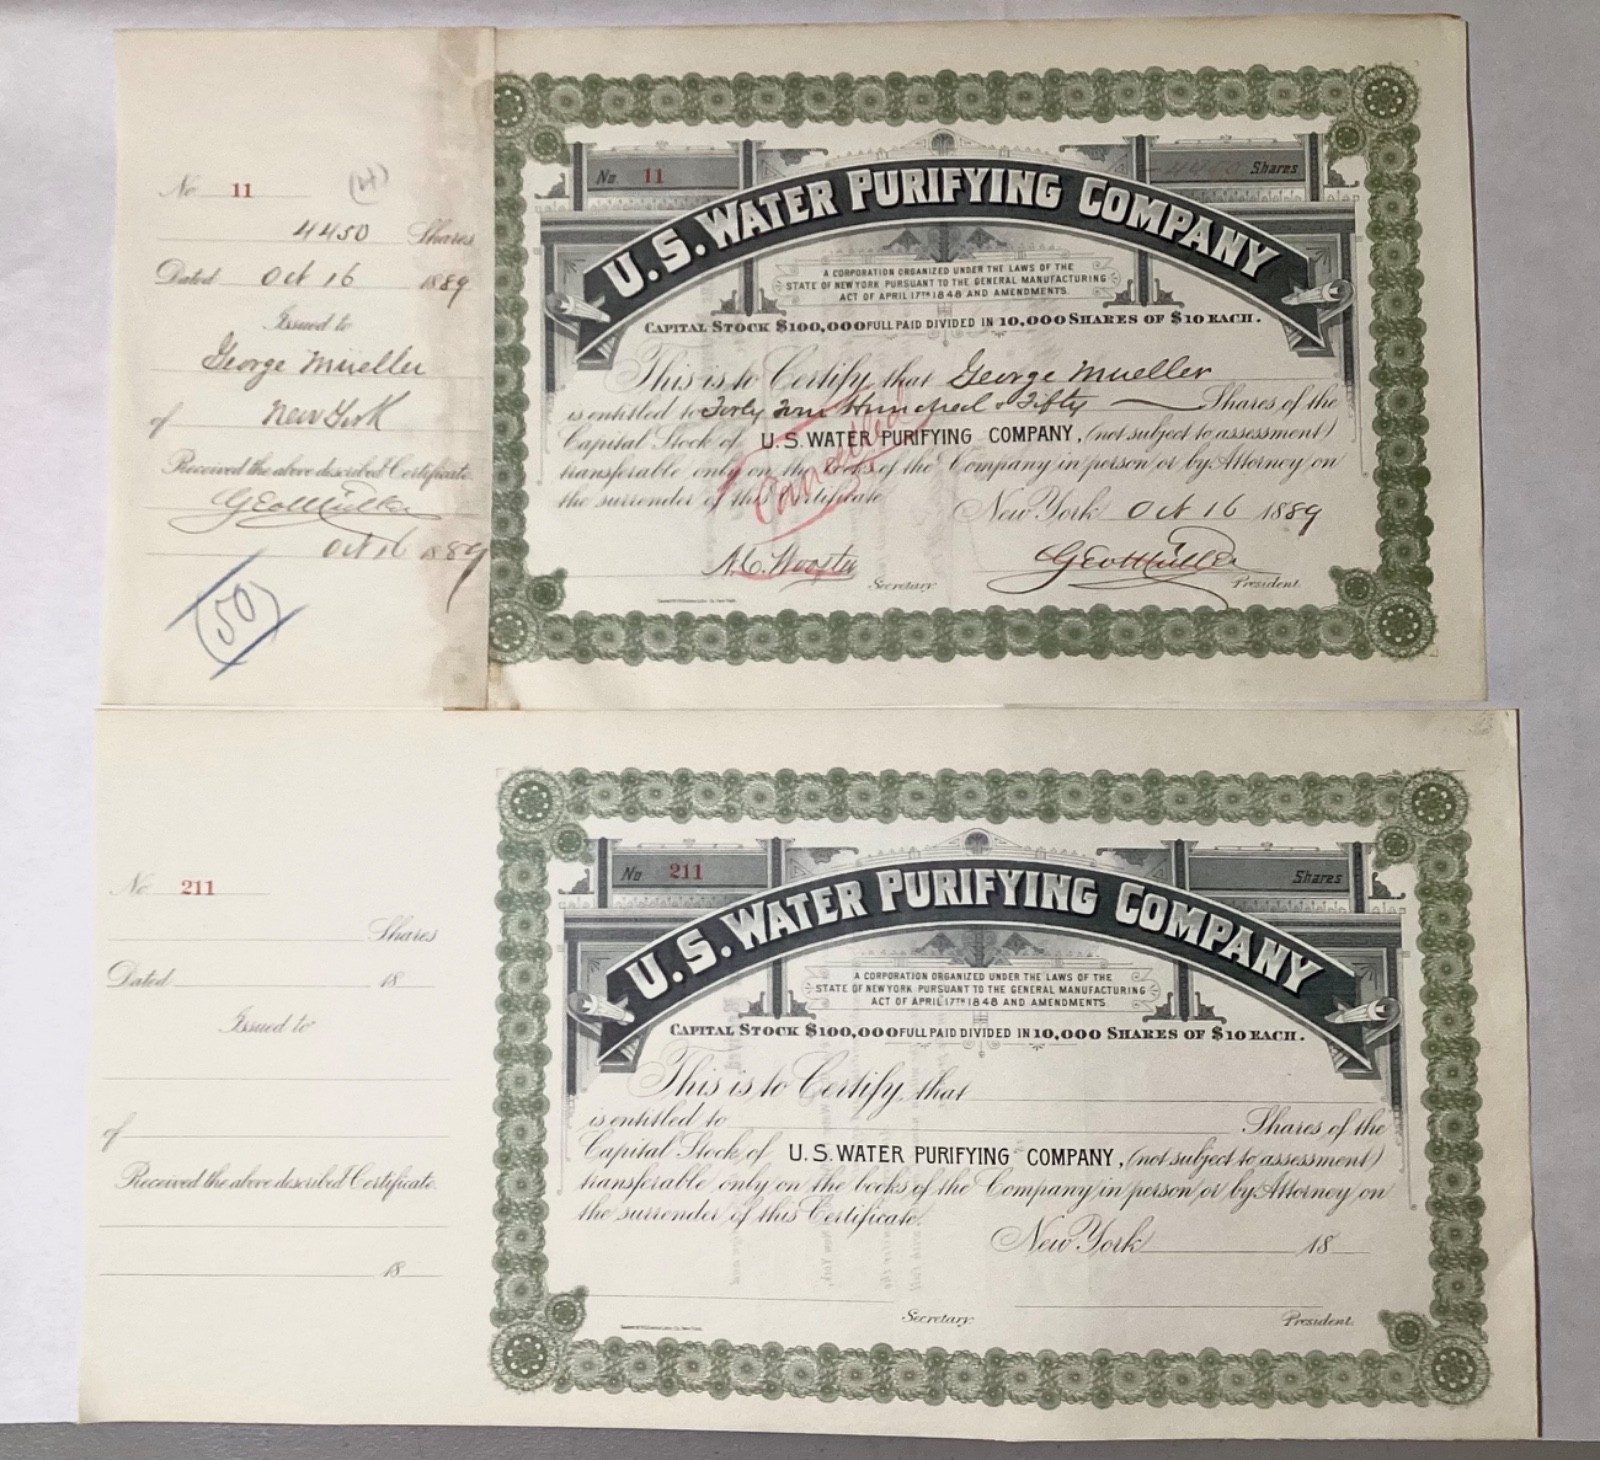 No 11 (4)
4450 Shares
Dated Oct 16 1889
Issued to
George Mueller
of New York
Received the above described Certificate.
Geo H Müller
Oct 16 1889
(50)
No. 11
4450 Shares
U.S. WATER PURIFYING COMPANY
A CORPORATION ORGANIZED UNDER THE LAWS OF THE
STATE OF NEW YORK PURSUANT TO THE GENERAL MANUFACTURING
ACT OF APRIL 17TH 1848 AND AMENDMENTS.
CAPITAL STOCK $100,000 FULL PAID DIVIDED IN 10,000 SHARES OF $10 EACH.
This is to Certify that George Mueller
is entitled to Forty Four Hundred & Fifty Shares of the
Capital Stock of U.S. WATER PURIFYING COMPANY, (not subject to assessment)
transferable only on the books of the Company in person or by Attorney on
the surrender of this Certificate
Cancelled
New York Oct 16 1889
Secretary. President.
No 211
Shares
Dated 18
Issued to
of
Received the above described Certificate.
18
No 211
Shares
U.S. WATER PURIFYING COMPANY
A CORPORATION ORGANIZED UNDER THE LAWS OF THE
STATE OF NEW YORK PURSUANT TO THE GENERAL MANUFACTURING
ACT OF APRIL 17TH 1848 AND AMENDMENTS
CAPITAL STOCK $100,000 FULL PAID DIVIDED IN 10,000 SHARES OF $10 EACH.
This is to Certify that
is entitled to Shares of the
Capital Stock of U.S. WATER PURIFYING COMPANY, (not subject to assessment)
transferable only on the books of the Company in person or by Attorney on
the surrender of this Certificate.
New York 18
Secretary. President.